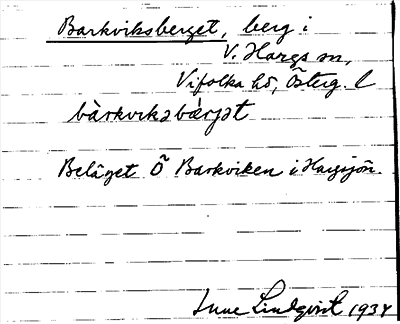 Barkviksberget, berg i
V. Hargs sn,
Vifolka hd, Österg. l
bàrkviksbærjət
Beläget Ö Barkviken i Hargsjön.
Sune Lindqvist 1934